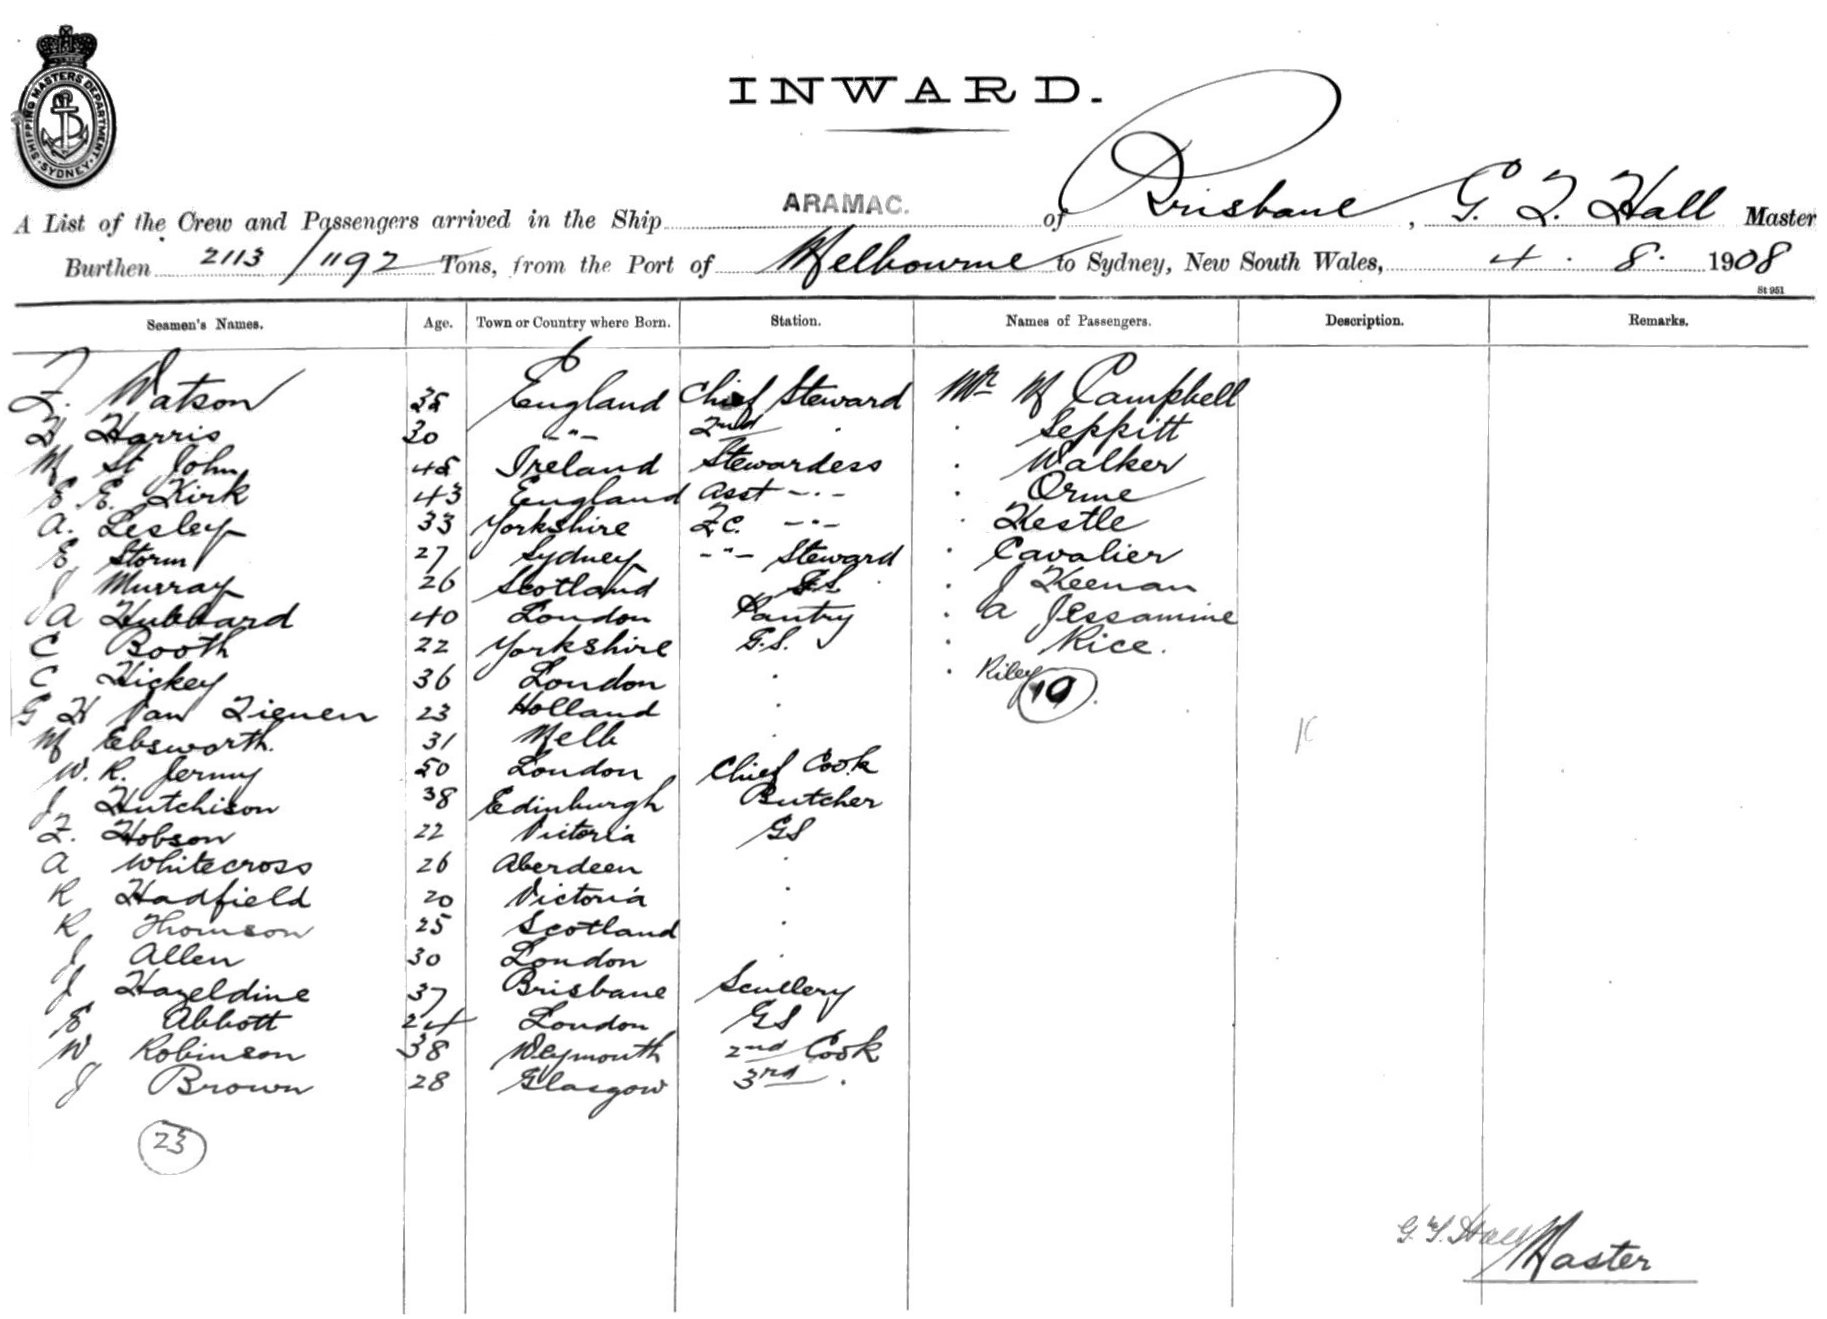 SHIPPING MASTERS DEPARTMENT. SYDNEY
INWARD.
A List of the Crew and Passengers arrived in the Ship ARAMAC. of Brisbane, G. T. Hall Master
Burthen 2113/1192 Tons, from the Port of Melbourne to Sydney, New South Wales, 4. 8. 1908
St 951
Seamen's Names. Age. Town or Country where Born. Station. Names of Passengers. Description. Remarks.
F. Watson 38 England Chief Steward Mr M Campbell
H Harris 30 -"- 2nd " " Seppitt
M St John 48 Ireland Stewardess " Walker
E E. Kirk 43 England Asst -"- " Orme
A. Lesley 33 Yorkshire F.C. -"- " Kestle
E Storm 27 Sydney -"- Steward " Cavalier
J Murray 26 Scotland GS " J Keenan
A Hubbard 40 London Pantry " A Jessamine
C Booth 22 Yorkshire G.S. " Rice.
C Hickey 36 London " " Riley
10
G H Van Tienen 23 Holland "
M Ebsworth. 31 Melb "
W. R. Jermy 50 London Chief Cook
J Hutchison 38 Edinburgh Butcher
F. Hobson 22 Victoria GS
A Whitecross 26 Aberdeen "
R Hadfield 20 Victoria "
R Thomson 25 Scotland "
J Allen 30 London "
J Hazeldine 37 Brisbane Scullery
E Abbott 24 London GS
W Robinson 38 Weymouth 2nd Cook
J Brown 28 Glasgow 3rd "
23
G. T. Hall Master